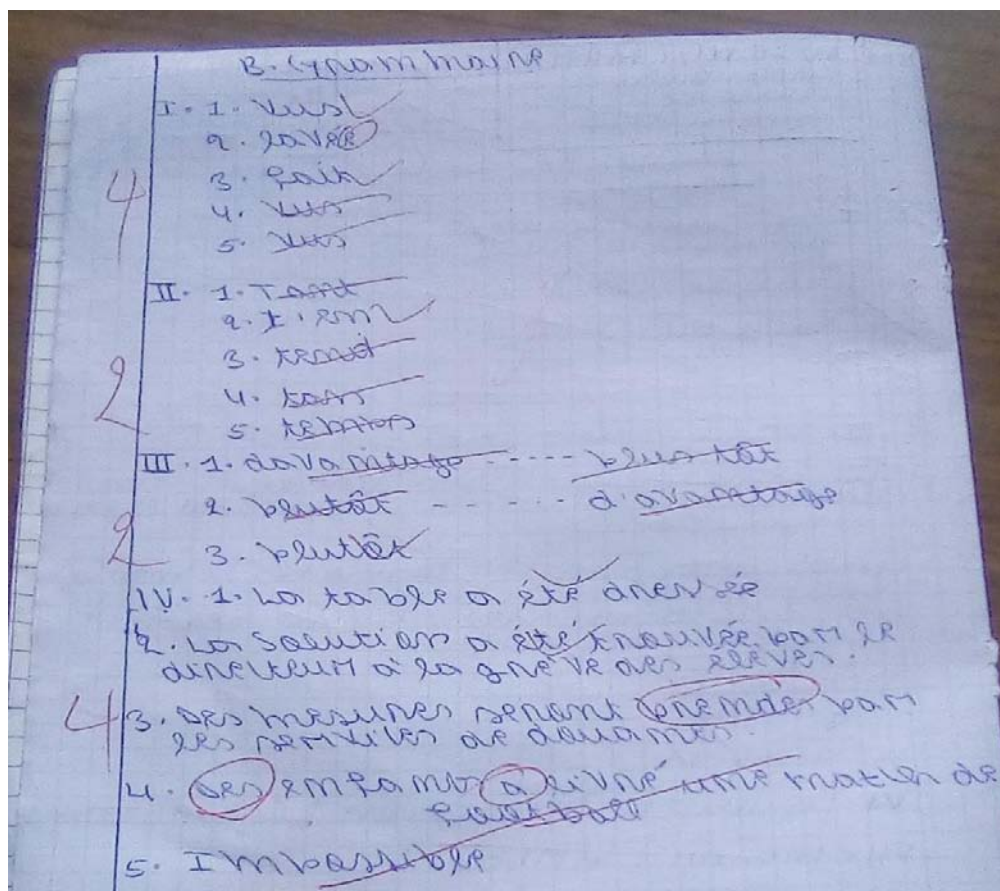 B. Grammaire
I. 1. Vus
2. lavée
3. fait
4. vus
5. vus
4
II. 1. Tant
2. t'em
3. tend
4. tans
5.
2
III. 1. davantage ---- plus tôt
2. plutôt ----- d'avantage
3. plutôt
2
IV. 1. La table a été dressée
2. La solution a été trouvée par le
directeur à la grève des élèves.
3. Des mesures seront par
les services de douanes.
4
4. Des enfants a livré une match de
football
5. Impossible